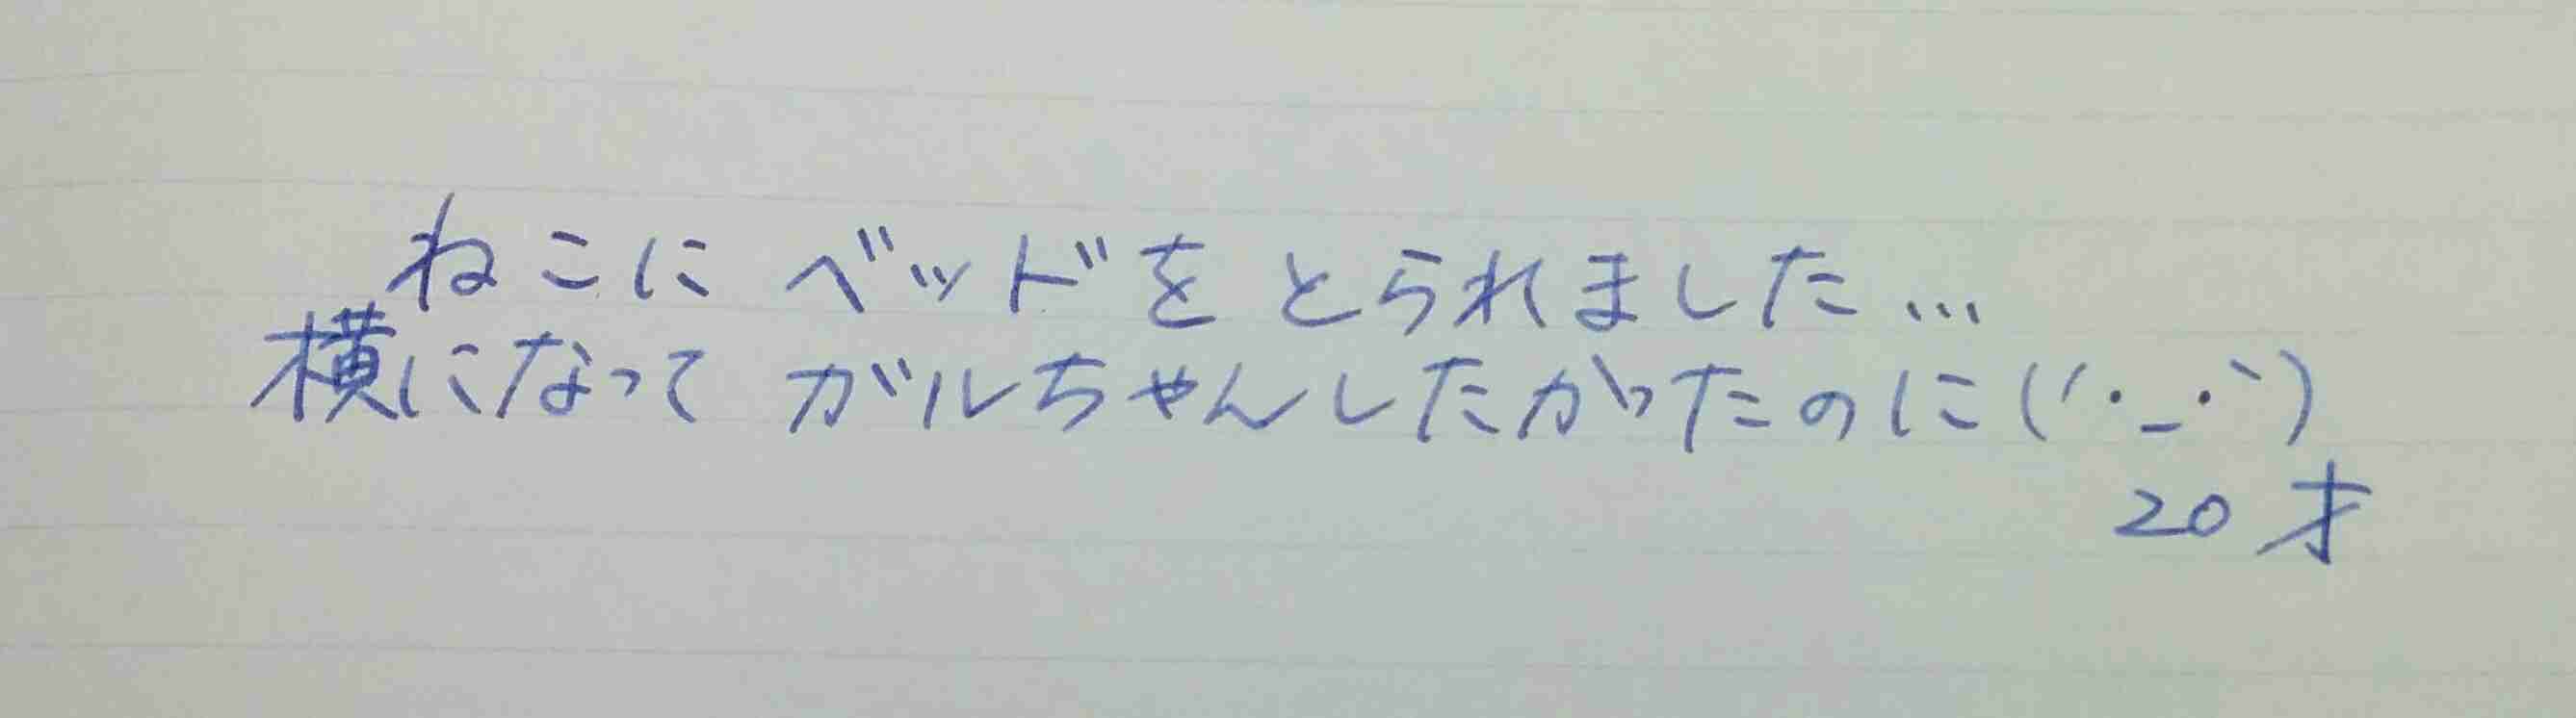 ねこに ベッドを とられました…
横になって ガルちゃんしたかったのに(´・_・`)
20才